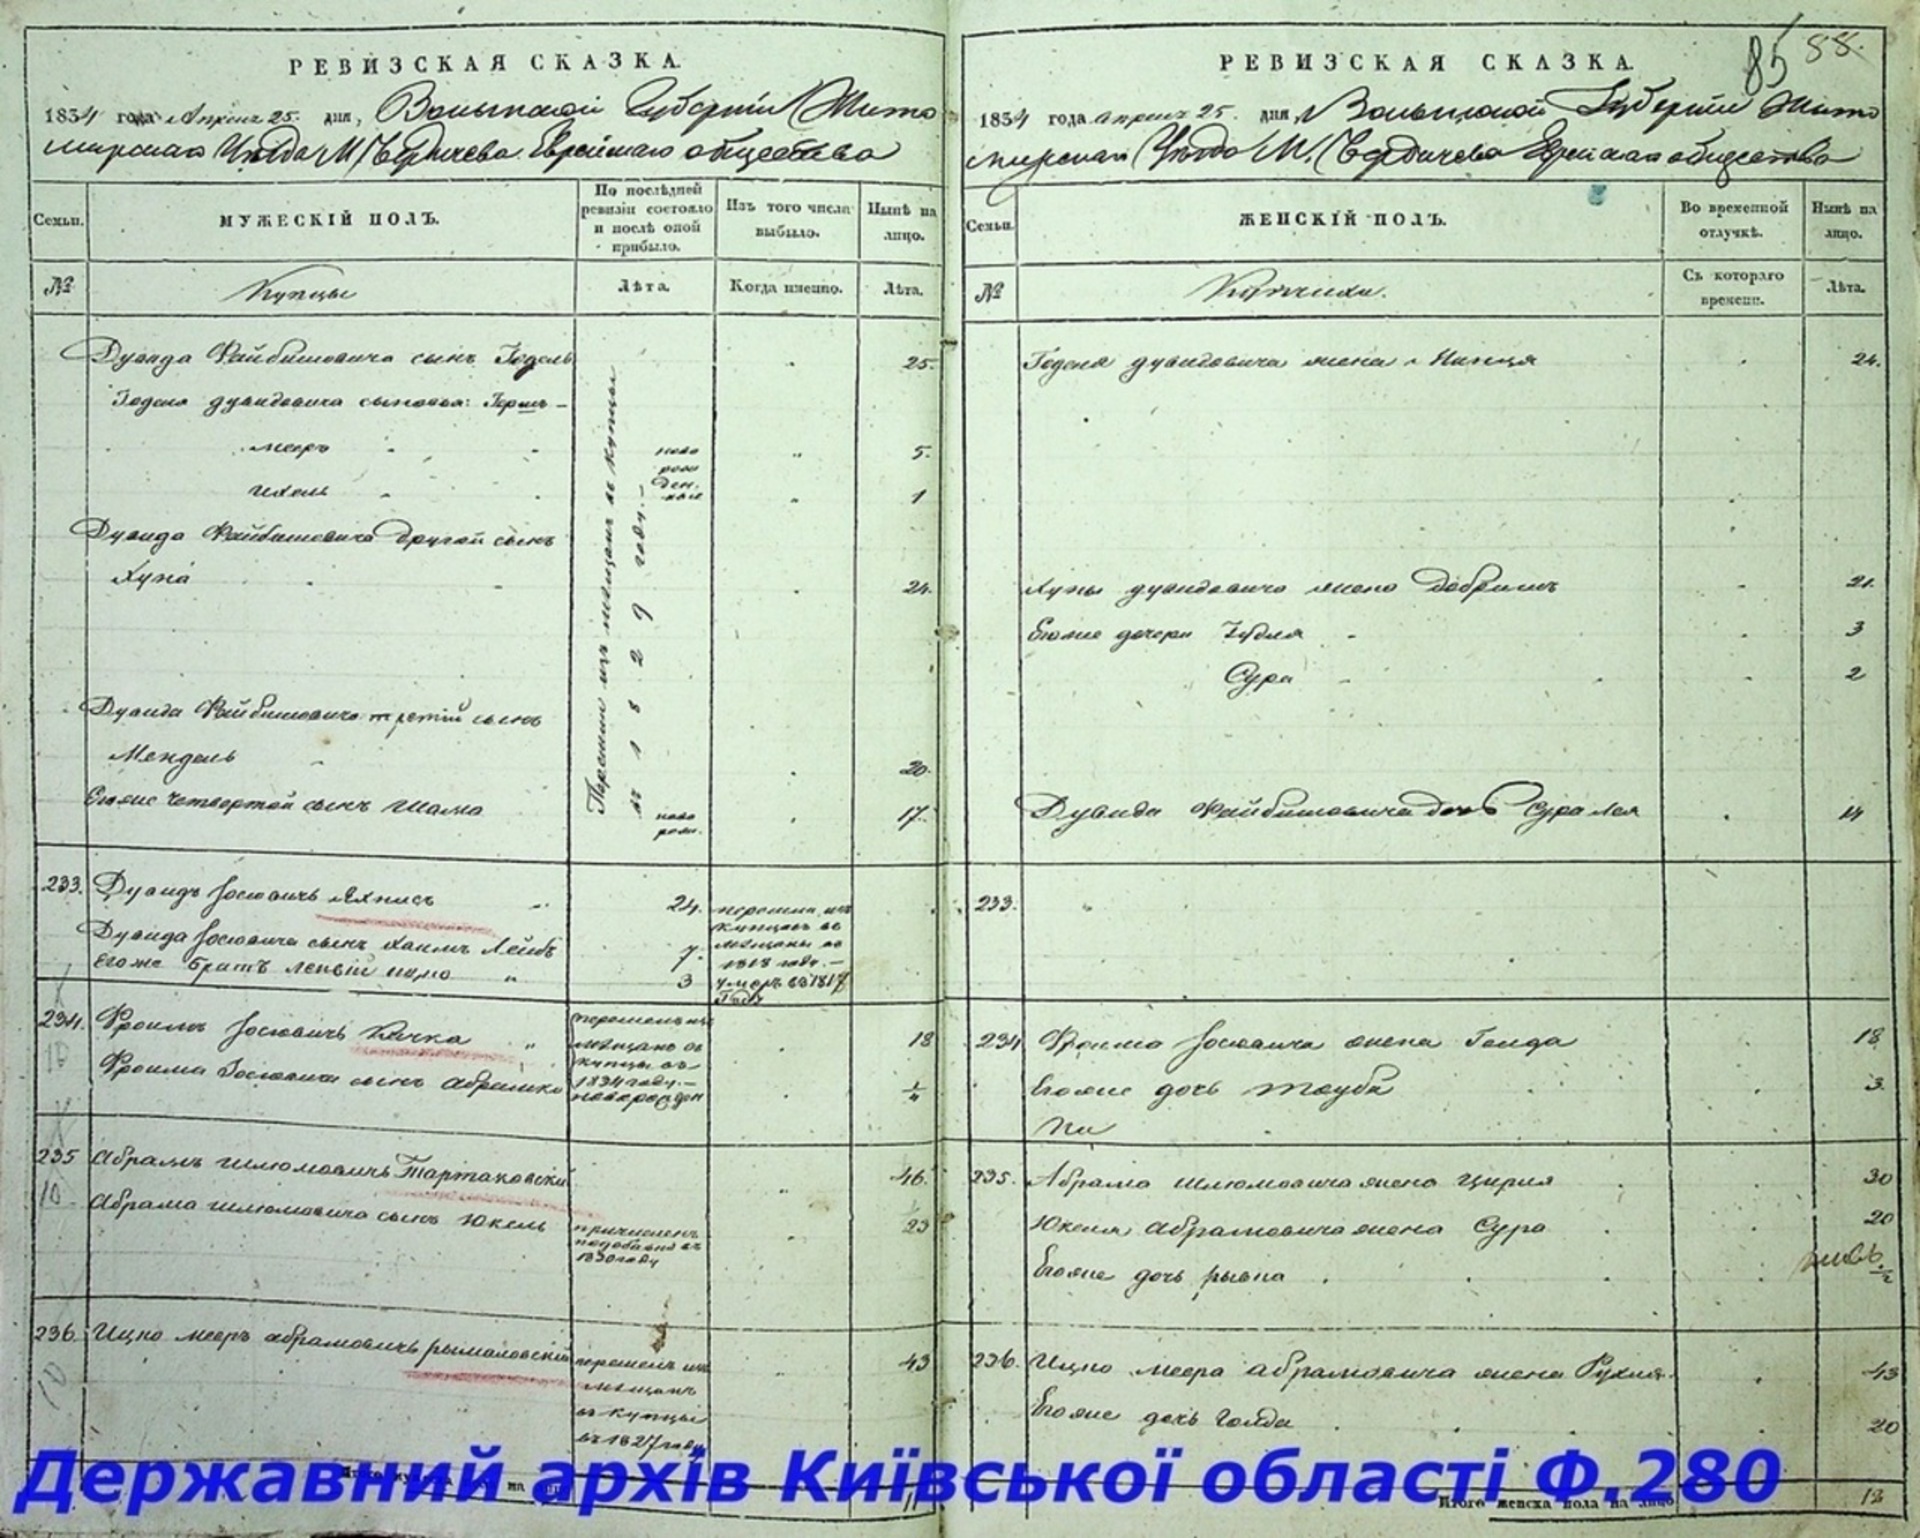 РЕВИЗСКАЯ СКАЗКА.
1834 года Апреля 25 дня, Волынской Губернии Жито
мирскаго Уезда М. Бердичева Еврейскаго общества
Семьи.
МУЖЕСКІЙ ПОЛЪ.
По послѣдней ревизіи состояло и послѣ оной прибыло.
Изъ того числа выбыло.
Нынѣ на лицо.
№
Купцы
Лѣта.
Когда именно.
Лѣта.
Дувида Файбишовича сынъ Годель 25.
Годеля дувидовича сыновья: Герш-
мееръ ново рожденные 5.
ихель 1
Дувида Файбишовича другой сынъ
Хуна 24.
Дувида Файбишовича третій сынъ
Мендель 20.
Егоже четвертой сынъ Шама ново рож. 17.
Перешли изъ мещанъ въ купцы
въ 1829 году.
233. Дувидъ Іосіовичъ 24. перешли изъ купцовъ въ мещаны въ 1818 году.
Дувида Іосіовича сынъ Хаимъ Лейбъ 7.
Егоже братъ 3 умеръ въ 1817 году
234. Фроимъ Іосіовичъ Кичка перешелъ изъ мещанъ въ купцы въ 1834 году. 18
Фроима Іосіовича сынъ Абрамко новорожден
235 Абрамъ Шлюмовичъ Тартаковски 46.
10
Абрама шлюмовича сынъ Юкель причисленъ въ 1830 году 23
236. Ицко мееръ абрамовичъ рымаловскій перешелъ изъ мещанъ въ купцы въ 1827 году 43
10
РЕВИЗСКАЯ СКАЗКА.
85 88.
1834 года апреля 25. дня, Волынской Губерніи Жито
мирскаго Уезда М. Бердичева Еврейскаго общества
Семьи.
ЖЕНСКІЙ ПОЛЪ.
Во временной отлучкѣ.
Нынѣ на лицо.
№
Купчихи.
Съ котораго времени.
Лѣта.
Годеля дувидовича жена 24.
Хуны дувидовича жена Добришъ 21.
Егоже дочери 3
Сура 2
Дувида Файбишовича дочь Сура Лея 14
233.
234 Фроима Іосіовича жена Голда 18
Егоже дочь Тауба 3.
235. Абрама шлюмовича жена Цирля 30
Юкеля абрамовича жена Сура 20
Егоже дочь рывка 1/2
236. Ицко меера абрамовича жена Рухля 43
Егоже дочь Голда 20
Итого женска пола на лицо 13
Державний архів Київської області Ф.280